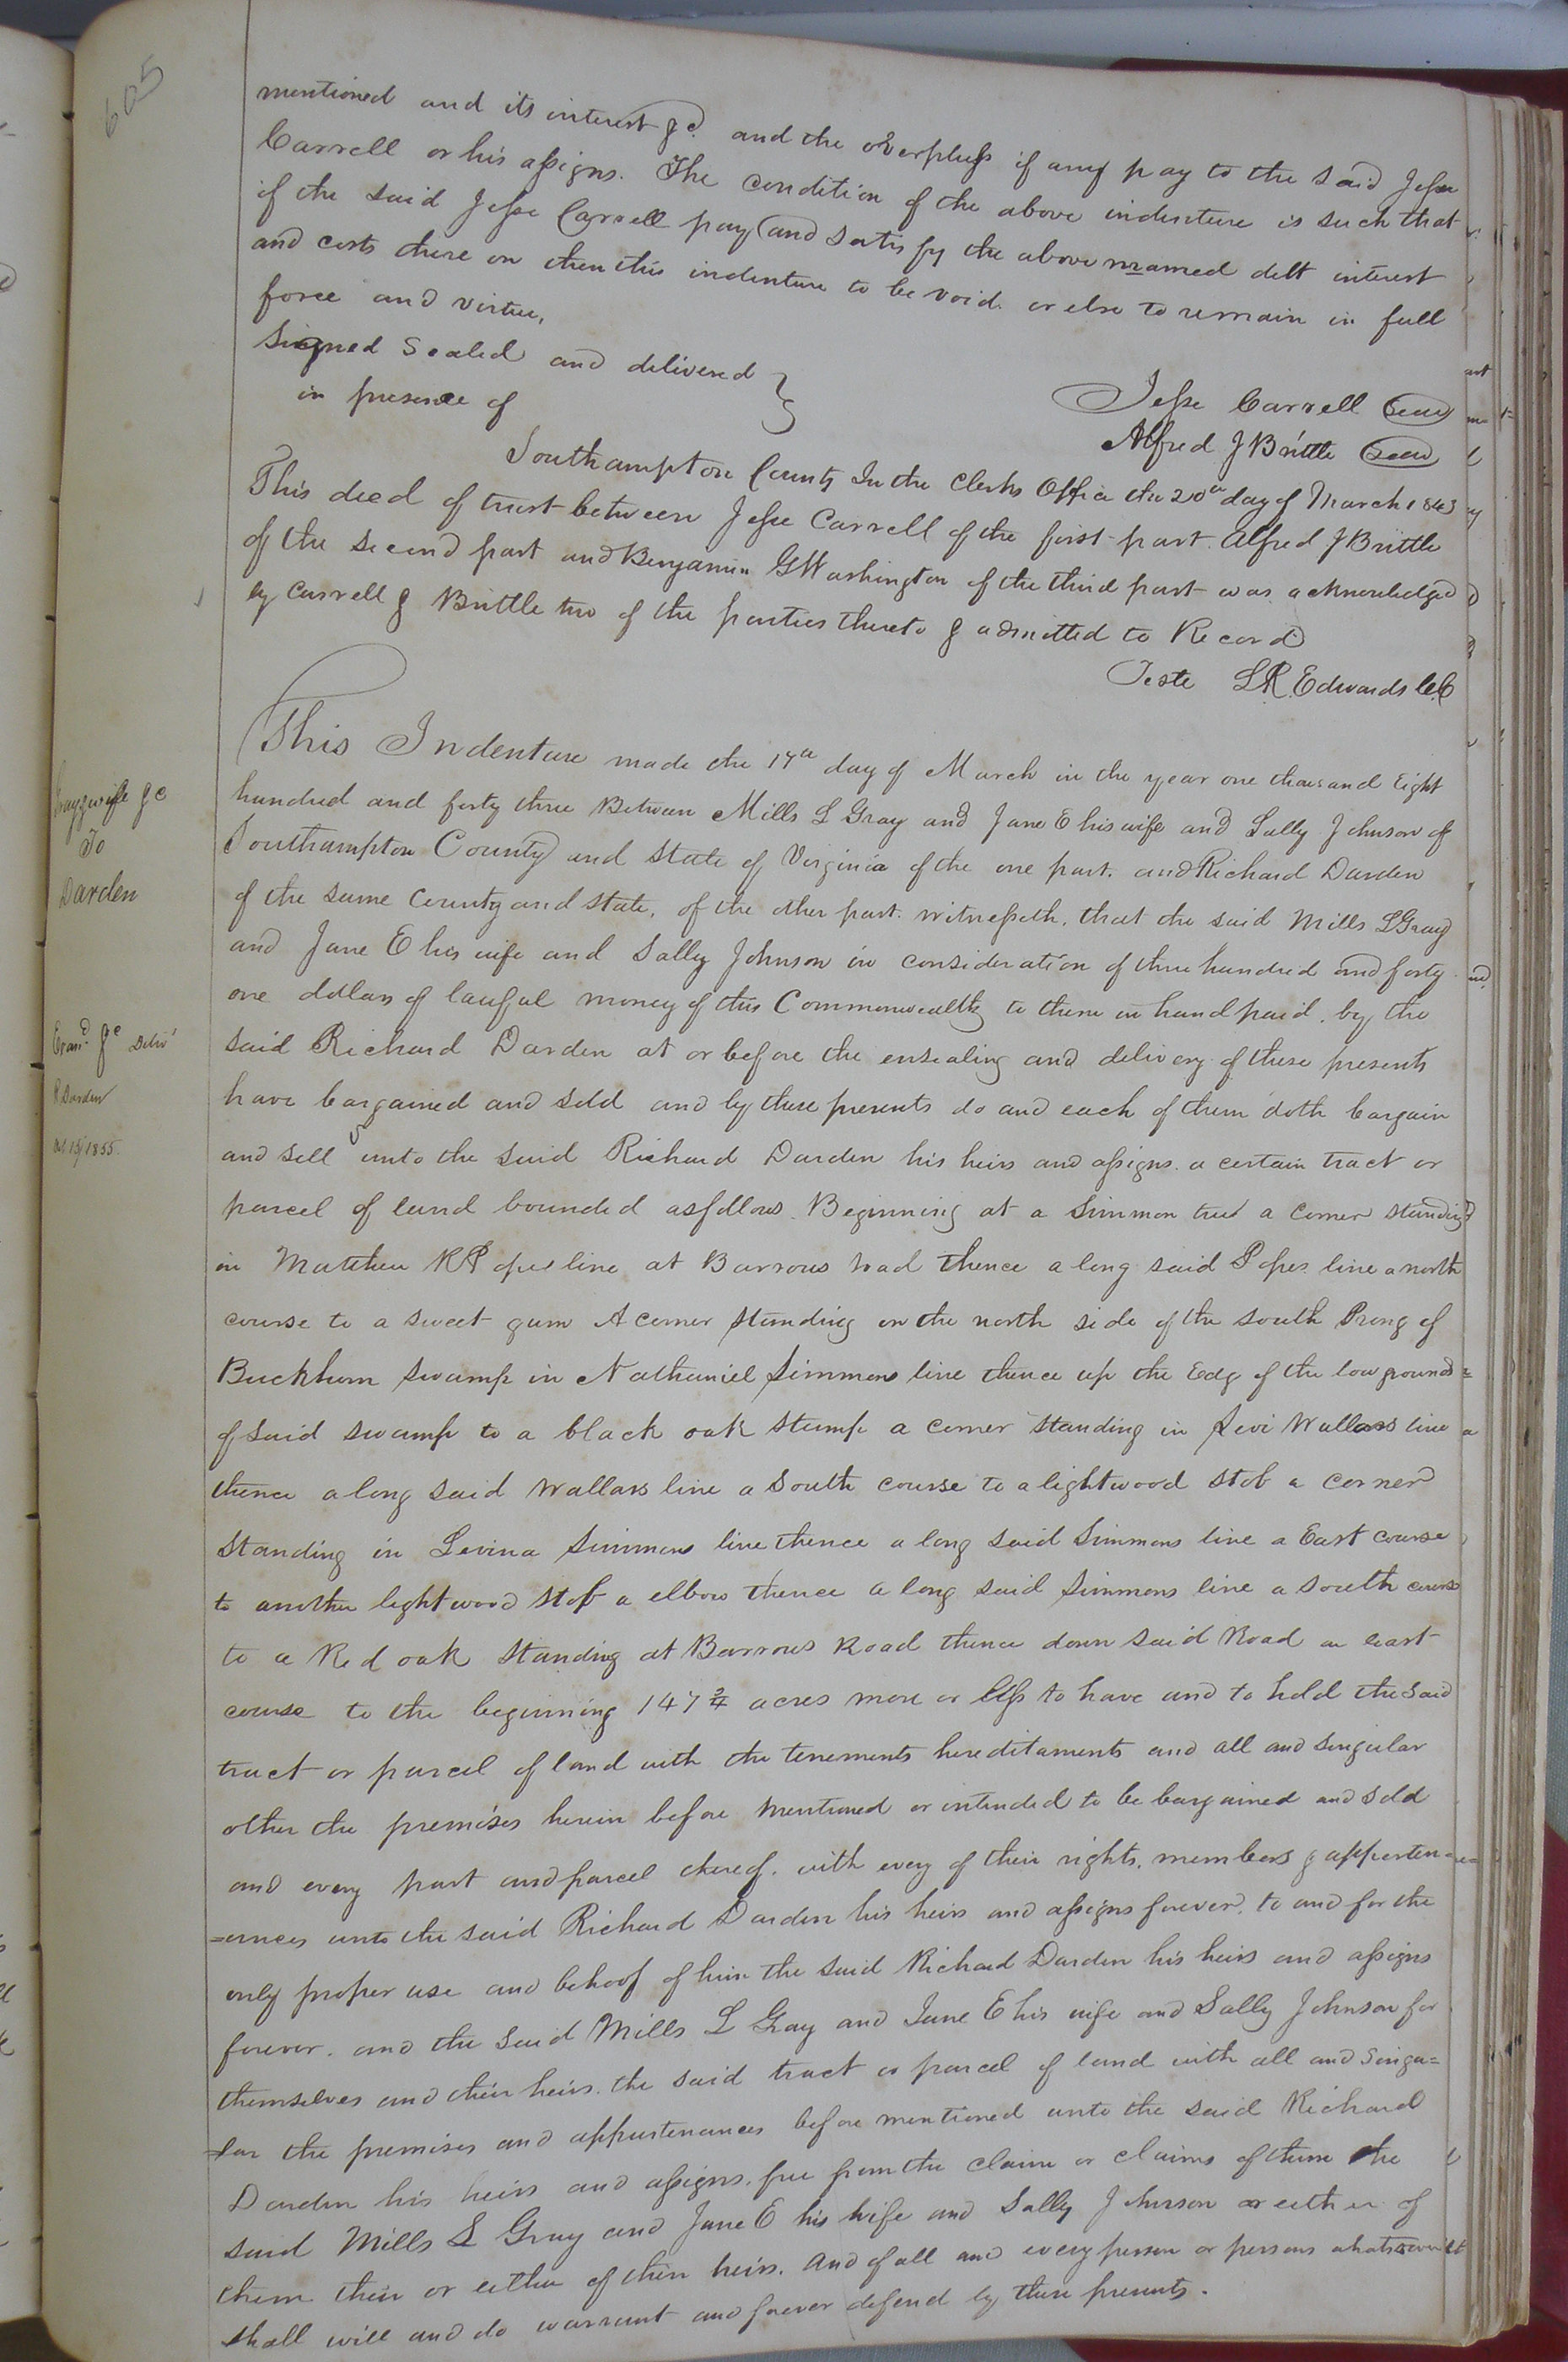 605
mentioned and its interest &c. and the overpluss if any pay to the said Jesse
Carrell or his assigns. The condition of the above indenture is such that
if the said Jesse Carrell pay and satisfy the above named debt interest
and costs there on then this indenture to be void. or else to remain in full
force and virtue,
Signed Sealed and delivered }
in presence of
Jesse Carrell Seal
Alfred J Brittle Seal
Southampton County In the Clerks Office the 20th day of March 1843
This deed of trust between Jesse Carrell of the first part. Alfred J Brittle
of the second part and Benjamin G Washington of the third part was acknowledged
by Carrell & Brittle two of the parties thereto & admitted to Record
Teste L R. Edwards C.C
Gray & wife &c
To
Darden
This Indenture made the 17th day of March in the year one thousand Eight
hundred and forty three Between Mills L Gray and Jane E his wife and Sally Johnson of
Southampton County and State of Virginia of the one part. and Richard Darden
of the same County and State, of the other part. witnesseth, that the said Mills L Gray
and Jane E his wife and Sally Johnson in consideration of three hundred and forty
one dollars of lawful money of this Commonwealth to them in hand paid, by the
Exand. &c Deliv'
R Darden
Oct 15/1855.
said Richard Darden at or before the ensealing and delivery of these presents
have bargained and sold and by these presents do and each of them doth bargain
and sell unto the said Richard Darden his heirs and assigns. a certain tract or
parcel of land bounded as follows. Beginning at a Simmon tree a corner standing
in Matthew R Popes line at Barrows road thence a long said Popes line a north
course to a sweet gum A corner standing on the north side of the south Prong of
Buckhorn Swamp in Nathaniel Simmons line thence up the Edg of the low ground
of said swamp to a black oak stump a corner standing in Levi Wallers line
thence a long said Wallars line a South course to a lightwood stob a corner
standing in Levina Simmons line thence a long said Simmons line a East course
to another lightwood stob a elbow thence a long said Simmons line a south course
to a Red oak standing at Barrows Road thence down said Road an east
course to the beginning 147 3/4 acres more or less to have and to hold the said
tract or parcel of land with the tenements hereditaments and all and singular
other the premises herein before mentioned or intended to be bargained and sold
and every part and parcel thereof. with every of their rights. members & apperten=
=ances unto the said Richard Darden his heirs and assigns forever. to and for the
only proper use and behoof of him the said Richard Darden his heirs and assigns
forever. and the said Mills L Gray and Jane E his wife and Sally Johnson for
themselves and their heirs. the said tract or parcel of land with all and singu=
=lar the premises and appurtenances before mentioned unto the said Richard
Darden his heirs and assigns. free from the claim or claims of them the
said Mills L Gray and Jane E his wife and Sally Johnson or either of
them their or either of their heirs. and of all and every person or persons whatsoever
shall will and do warrant and forever defend by these presents.